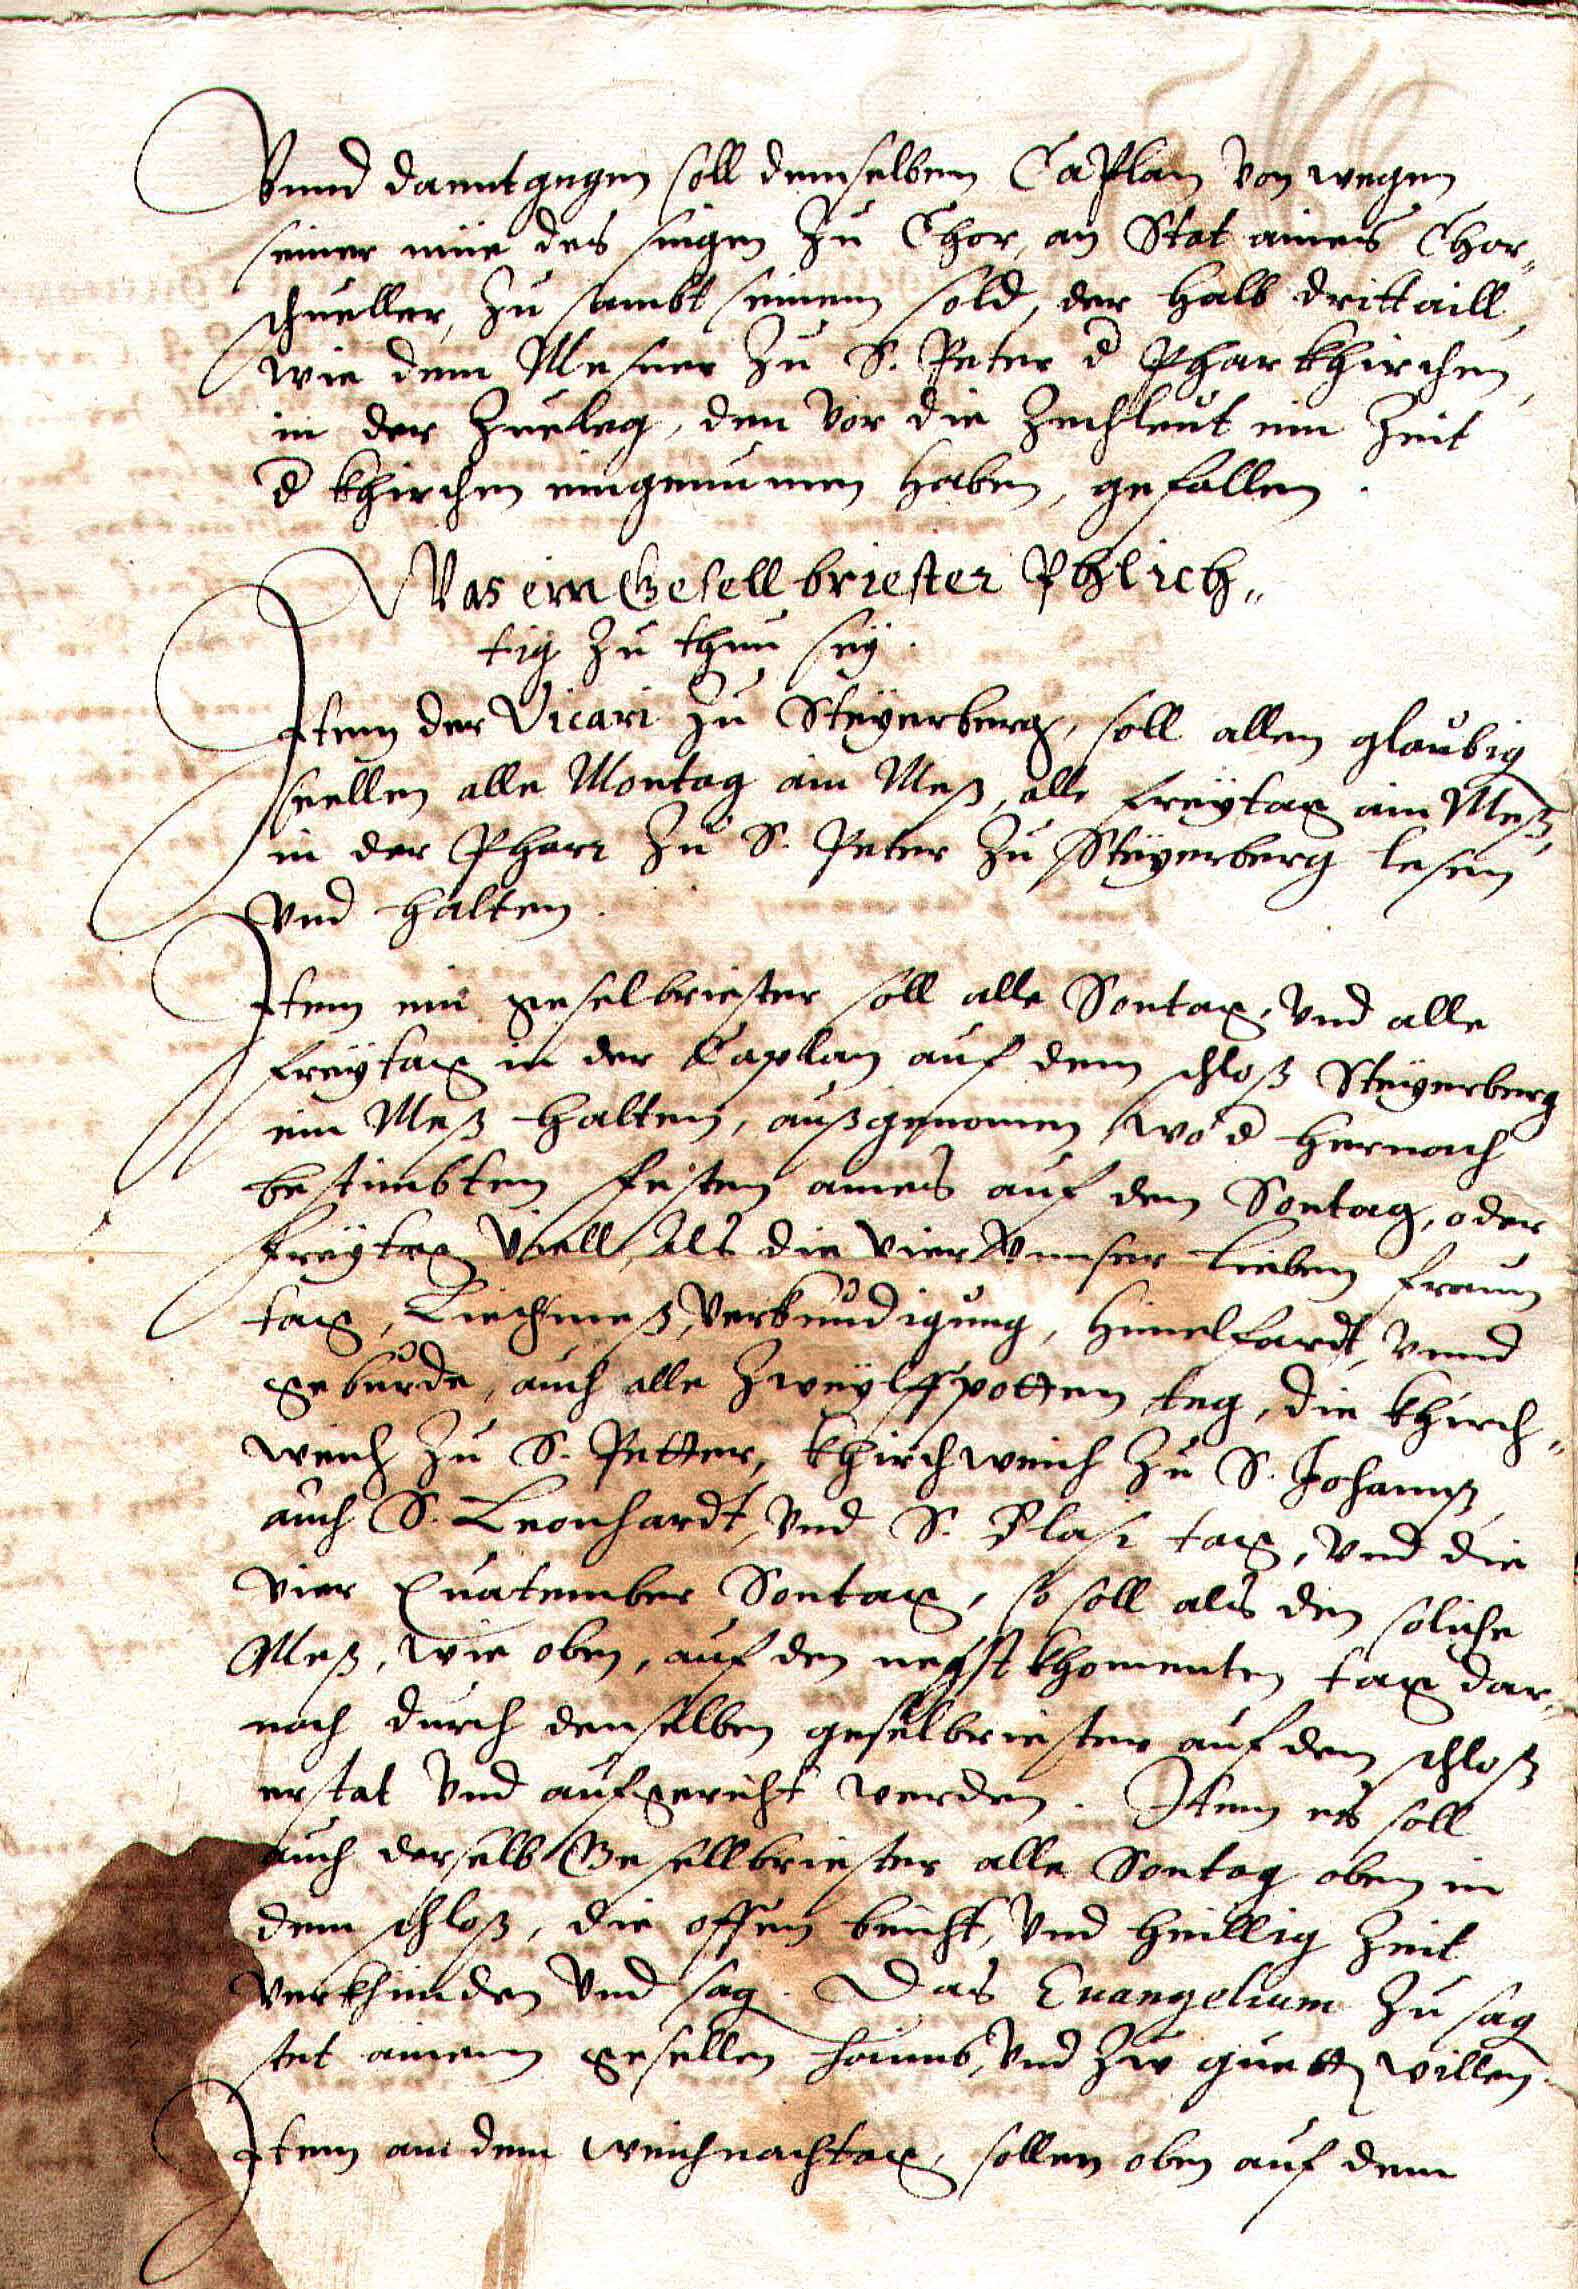 Vnnd danntgegen soll demselben Caplan von wegen
seiner müe des singen zu Chor, an Stat aines Chor„
schueller, zu sambt seinem sold, der halb drittaill,
wie dem Mesner zu S. Peter d Pharkhirchen,
in der Zueleg, den vor die Zechleut ein Zeit
d khirchen eingenummen haben, gefallen.
Was ein Gesell briester Phlich„
tig zu thun seÿ.
Item der Vicari zu Steÿerberg, soll allen glaubig
seellen alle Montag ain Meß, alle freÿtag ain Meß,
in der Pharr zu S. Peter zu Steÿerberg lesen
vnd halten.
Item ein geselbriester soll alle Sontag, vnd alle
freÿtag in der Caplan auf dem schloß Steÿerberg
ein Meß halten, außgenomen wo d hernach
bestimbten festen aines auf den Sontag, oder
freÿtag viell, als die vier vnnser lieben fraun
tag, Liechmeß, verkundigung, himelfardt, vnnd
geburde, auch alle Zweÿlffpotten teg, die khirch„
weich zu S. Petter, khirchweich zu S. Johannß,
auch S. Leonhardt, vnd S. Plasi tag, vnd die
vier Quatember Sontag, so soll als den soliche
Meß, wie oben, auf den negst khomenten tag dar„
nach durch denselben geselbriester auf dem schloß
erstat vnd aufgericht werden. Item es soll
auch derselb Gesellbriester alle Sontag oben in
dem schloß, die offen beicht, vnd heillig Zeit
verkhinden vnd sag. Das Euangelium zu sag
stet ainem gesellen haimb, vnd zw guett willen.
Item an dem weichnachtag, sollen oben auf dem